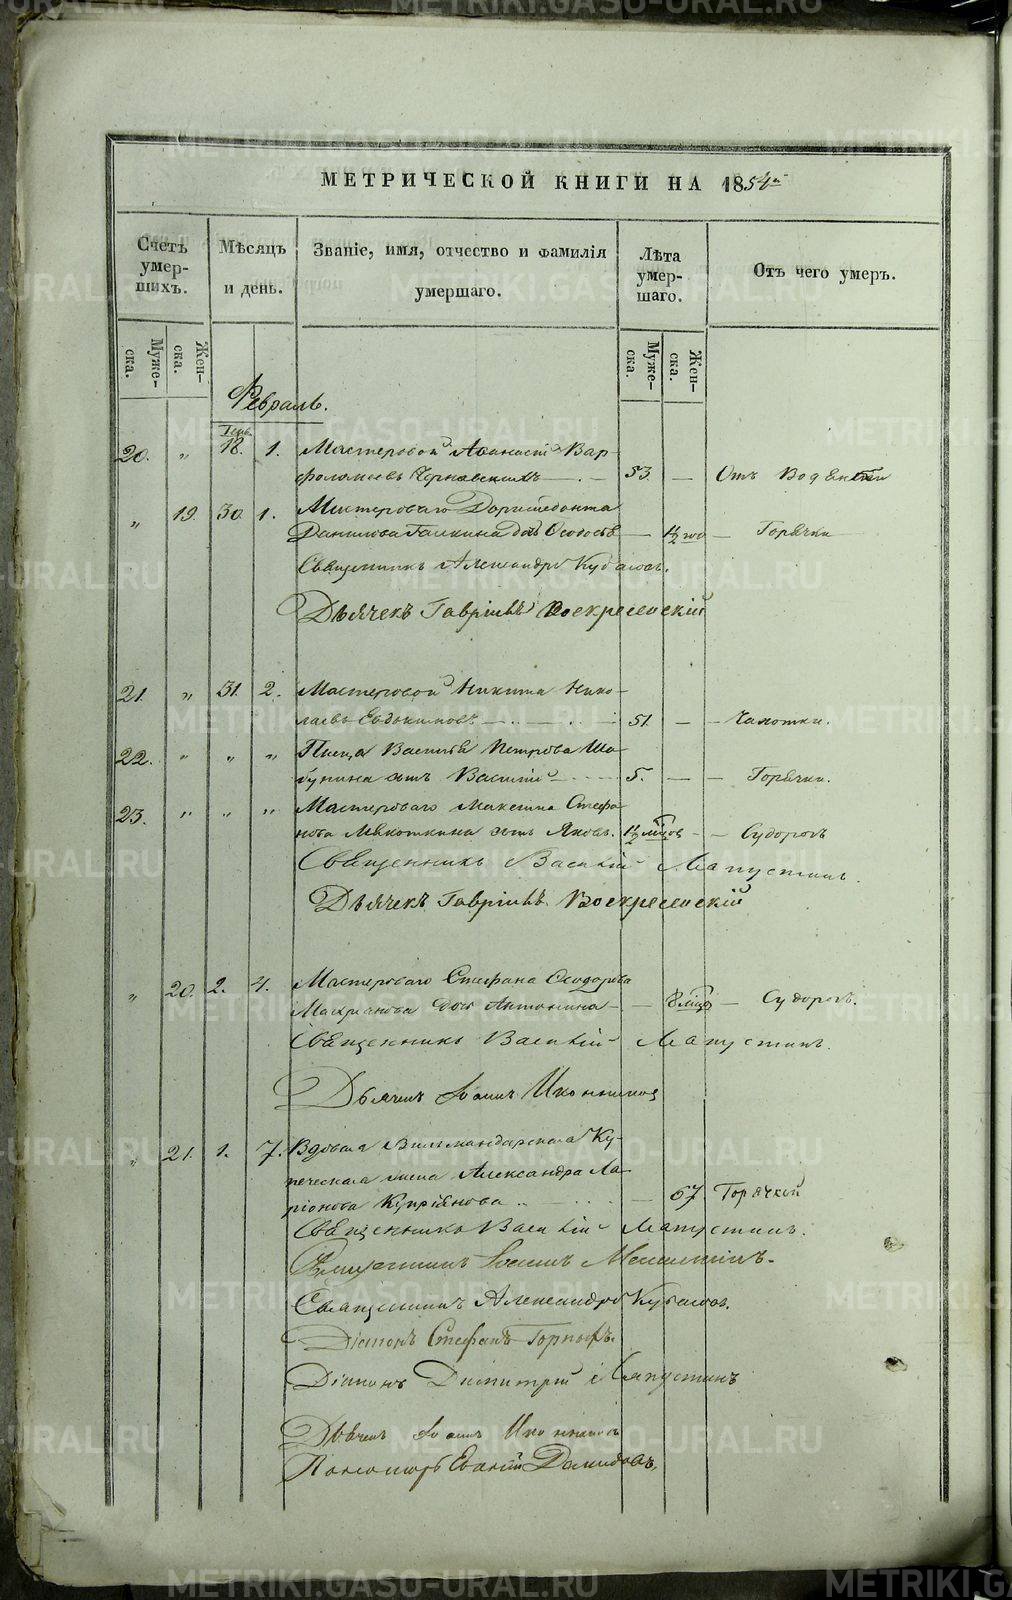 МЕТРИЧЕСКОЙ КНИГИ НА 1854й
Счетъ умер-шихъ.
Мѣсяцъ и день.
Званіе, имя, отчество и фамилія умершаго.
Лѣта умер-шаго.
Отъ чего умеръ.
Муже-ска.
Жен-ска.
Муже-ска.
Жен-ска.
Февраль.
Генв.
20. " 18. 1. Мастеровой Аѳанасій Вар-
фоломеевъ Чернавскихъ 53. — Отъ Водянки
" 19. 30. 1. Мастероваго
Данилова Галкина дочь Ѳеодосія — 1½ го — Горячки
Священникъ Александръ Кубасовъ.
Дьячекъ Гавріилъ Воскресенскій
21. " 31. 2. Мастеровой Никита Нико-
лаевъ Евдокимовъ 51. — Чахотки.
22. " " " Писца Василья Петрова Ша-
бунина сынъ Василій 5. — Горячки.
23. " " " Мастероваго Максима Стефа-
нова Мякоткина сынъ Яковъ. 1½ мѣсяцовъ — Судорогъ
Священникъ Василій Ляпустинъ.
Дьячекъ Гавріилъ Воскресенскій
" 20. 2. 4. Мастероваго Стефана Ѳеодорова
дочь Антонина — 8 мѣсяц — Судорогъ.
Священникъ Василій Ляпустинъ.
Дьячекъ Іоаннъ Иконников
" 21. 1. 7. Вдовая Вильмандарская Ку-
печеская жена Александра Ла-
ріонова Купріянова — 67. Горячкой
Священникъ Василій Ляпустинъ.
Священникъ Іоаннъ
Священникъ Александръ Кубасовъ.
Діаконъ Стефанъ Горныхъ.
Діаконъ Димитрій Ляпустинъ
Дьячекъ Іоаннъ Иконниковъ
Пономарь Евгеній Демидовъ.
METRIKI.GASO-URAL.RU